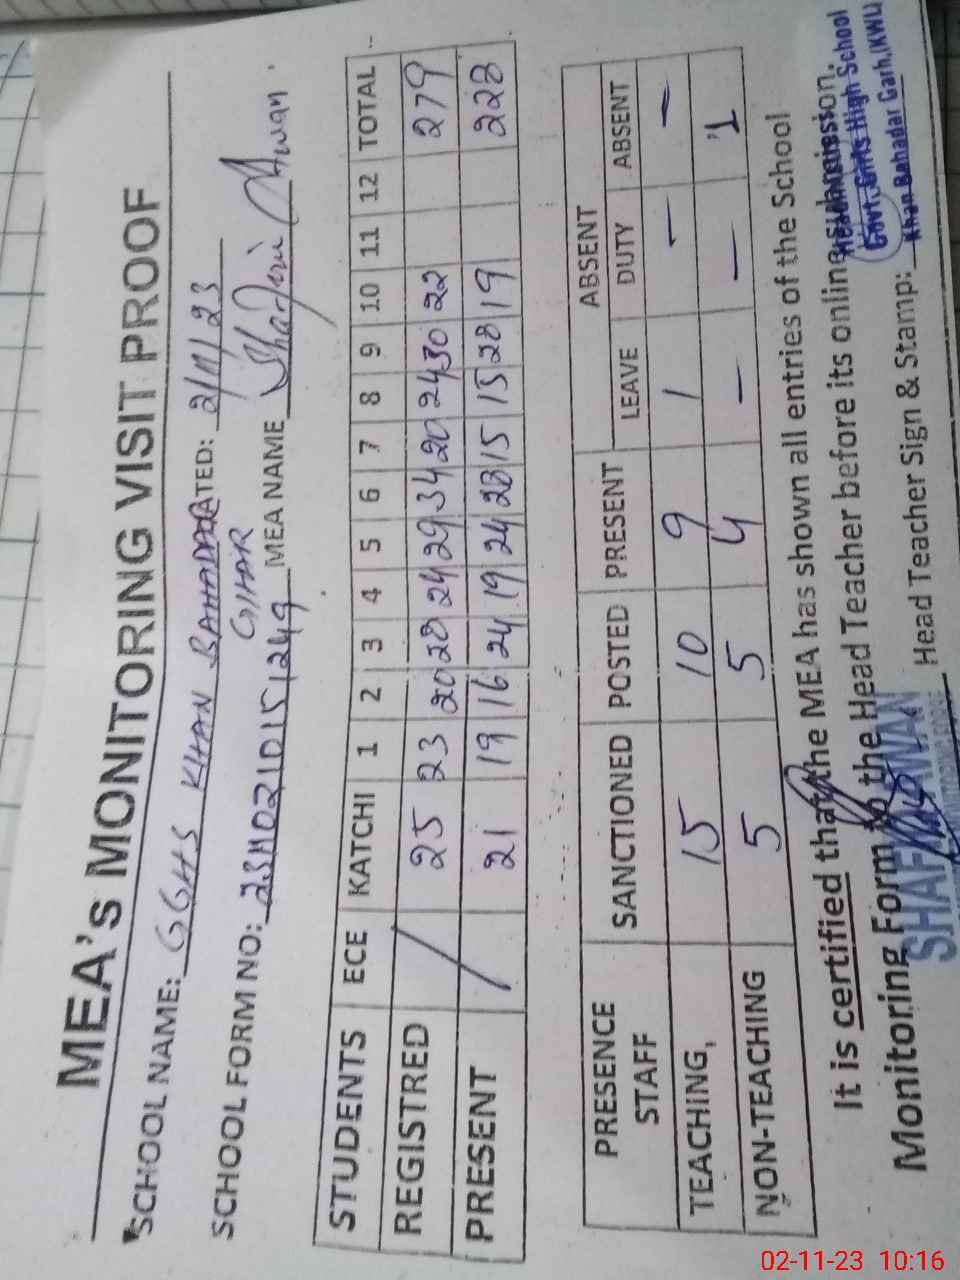 MEA's MONITORING VISIT PROOF
SCHOOL NAME: GGHS KHAN BAHADAR DATED: 2/11/23
GHAR
SCHOOL FORM NO: MEA NAME Awan
STUDENTS ECE KATCHI 1 2 3 4 5 6 7 8 9 10 11 12 TOTAL
REGISTRED / 25 23 20 28 24 29 34 20 24 30 22 279
PRESENT / 21 19 16 24 19 24 23 15 15 28 19 223
PRESENCE STAFF SANCTIONED POSTED PRESENT ABSENT
LEAVE DUTY ABSENT
TEACHING, 15 10 9 1 - -
NON-TEACHING 5 5 4 - - 1
It is certified that the MEA has shown all entries of the School
Monitoring Form to the Head Teacher before its online submission.
Head Teacher Sign & Stamp:
Govt. Girls High School
Khan Bahadar Garh, (KWL)
AWAN
02-11-23 10:16